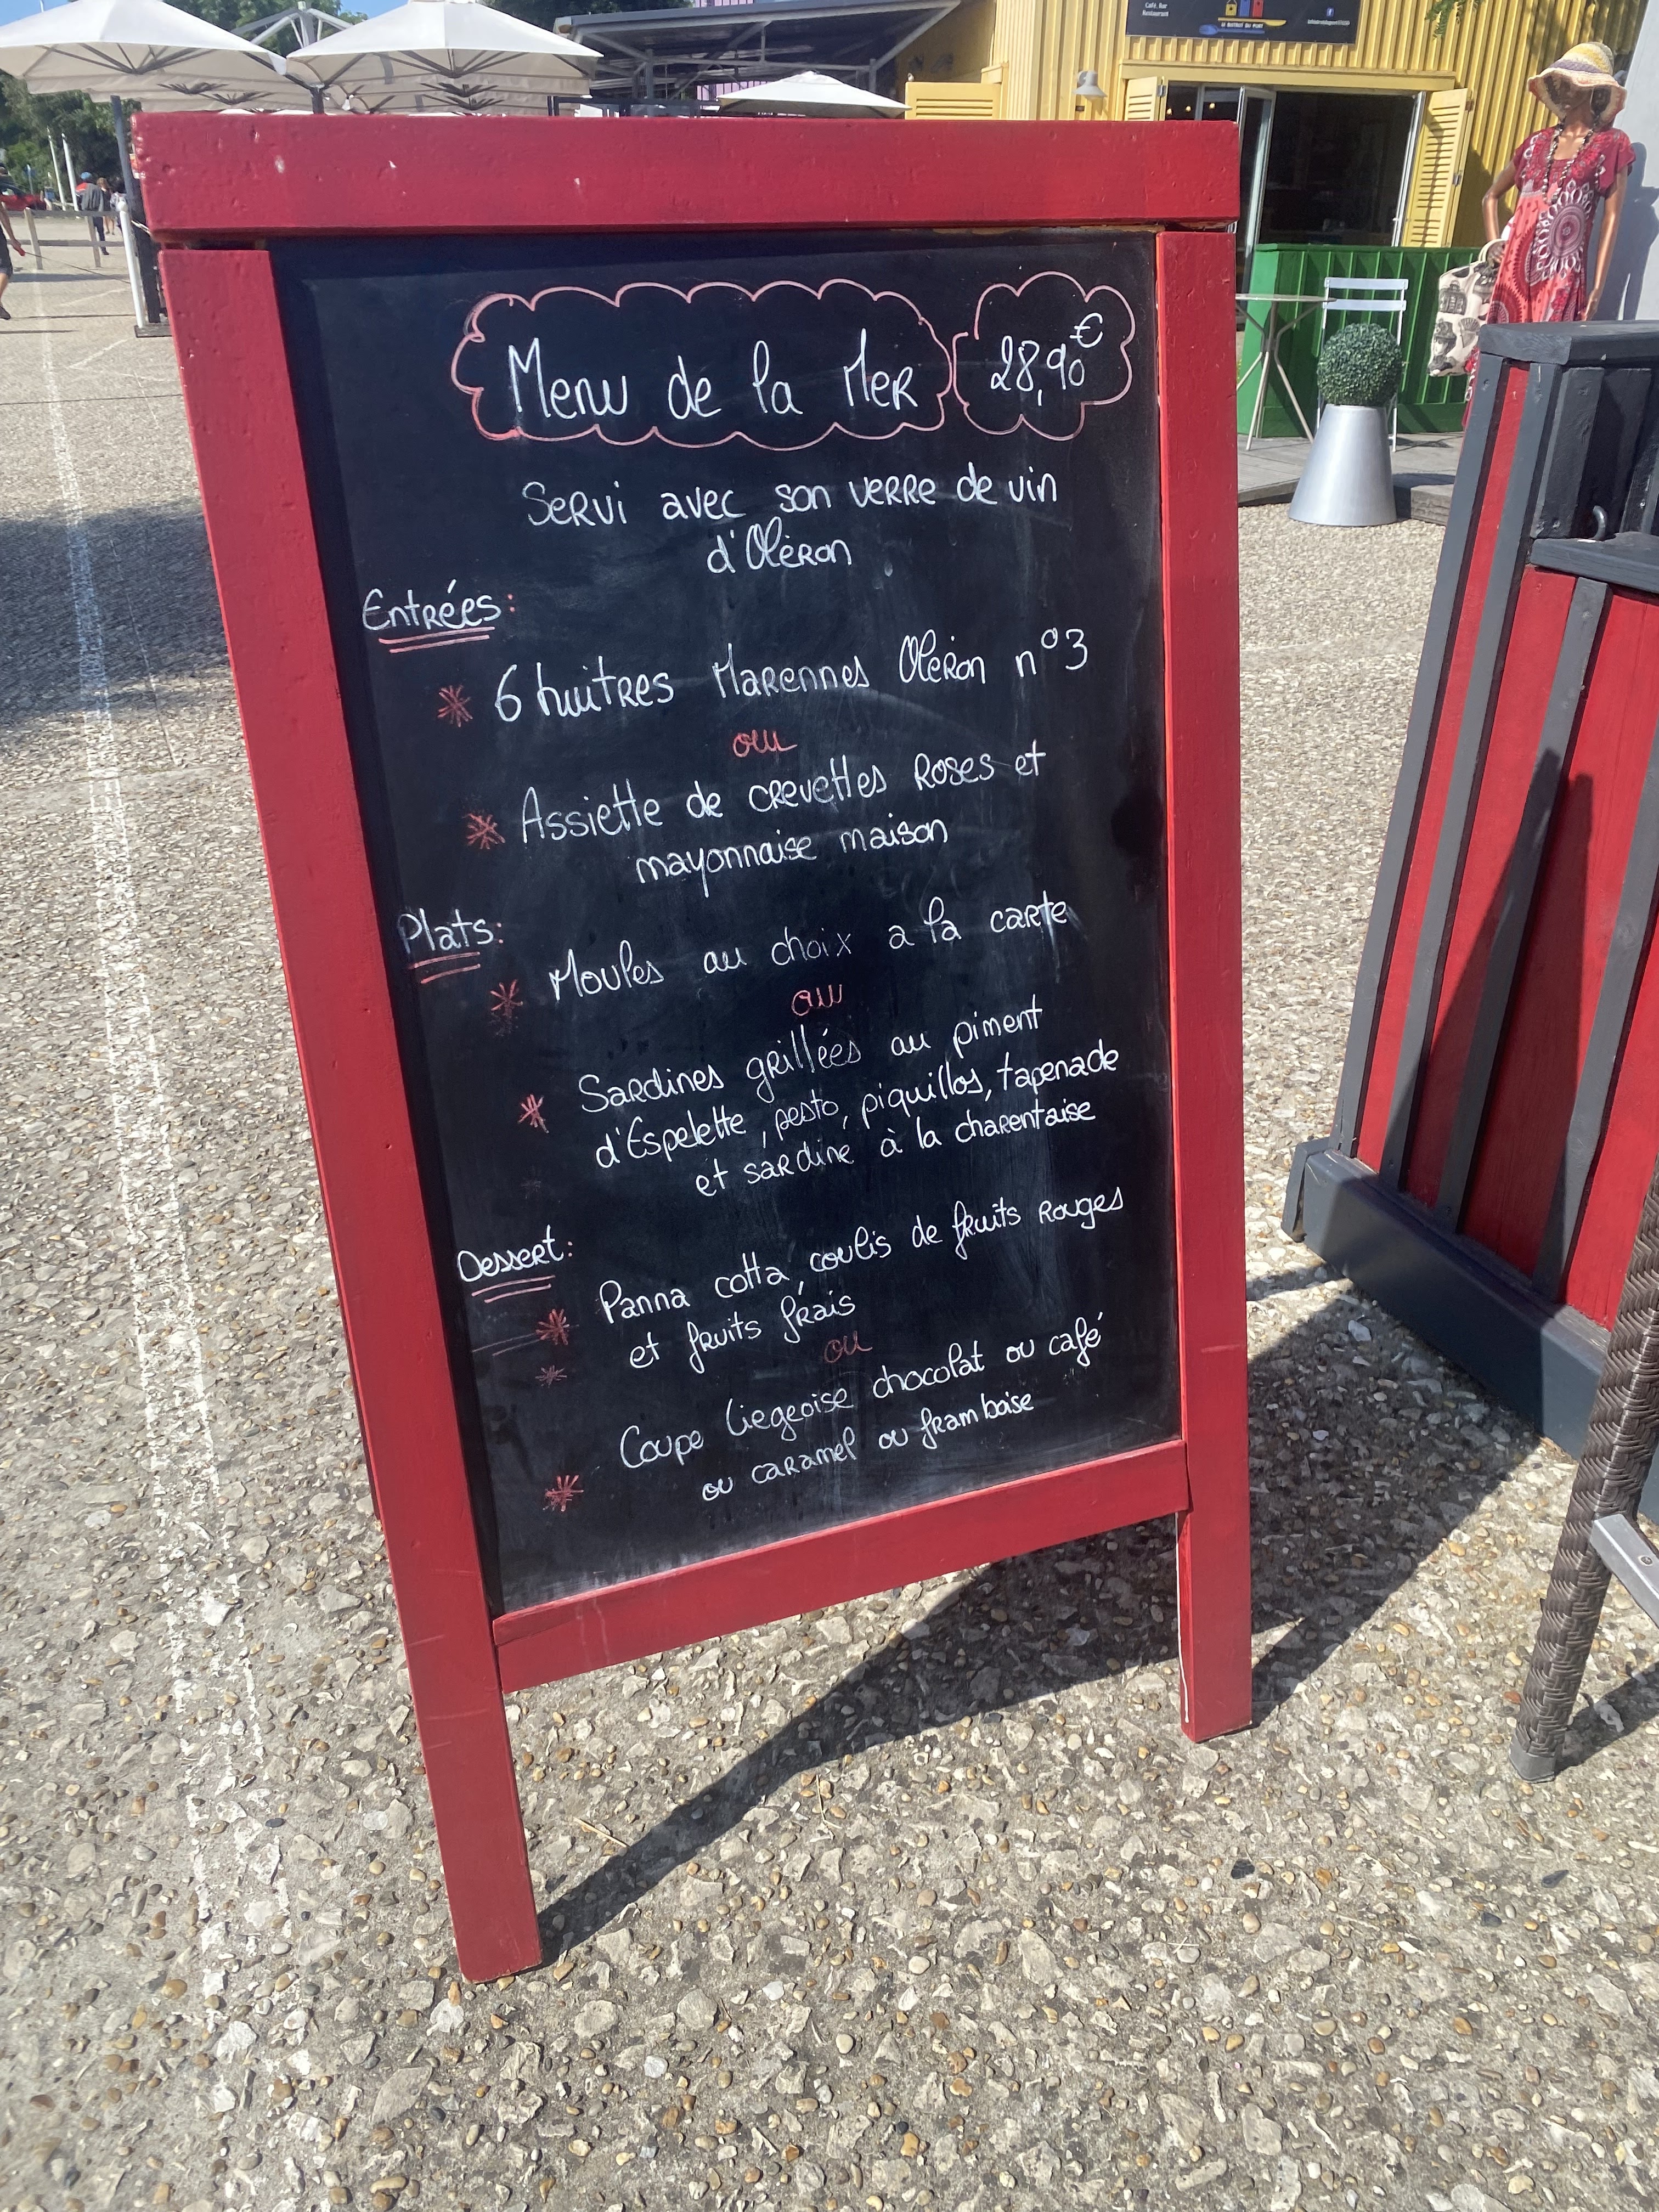 Café, Bar
Restaurant
LE BISTROT DU PORT
Menu de la Mer 28,90€
Servi avec son verre de vin
d'Oléron
Entrées:
* 6 huitres Marennes Oléron n°3
ou
* Assiette de crevettes roses et
mayonnaise maison
Plats:
* Moules au choix a la carte
ou
* Sardines grillées au piment
d'Espelette, pesto, piquillos, tapenade
et sardine à la charentaise
Dessert:
* Panna cotta, coulis de fruits rouges
et fruits frais
ou
* Coupe liegeoise chocolat ou café
ou caramel ou framboise